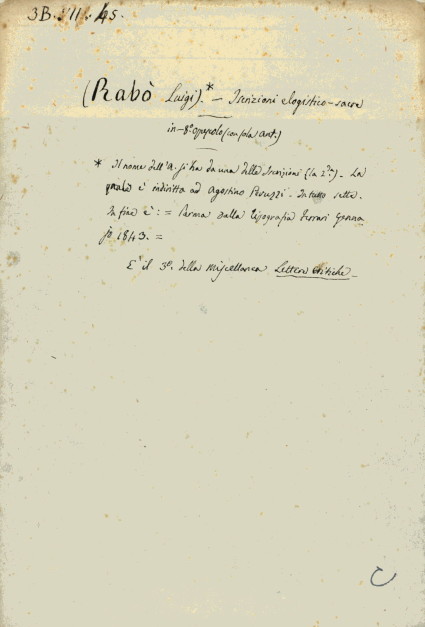 3B. II. 45.
(Rabò Luigi).* — Iscrizioni elogistico-sacre
in-8° opuscolo (con sola ant.)
* Il nome dell'A. si ha da una delle Iscrizioni (la 2ª) - La
quale è indiritta ad Agostino Peruzzi. In tutto sette.
In fine è: = Parma dalla tipografia Ferrari Genna
jo 1843. =
È il 3°. della Miscellanea Lettere Critiche -